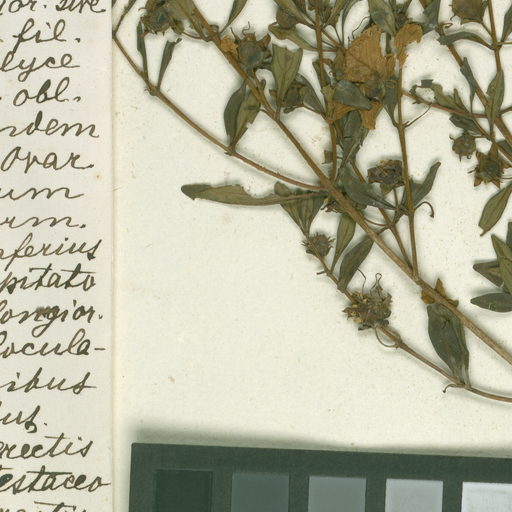 fil.
lyce
obl.
ndem
Ovar.
um
rm.
nferius
pitato
longior.
locula-
ibus
lus.
erectis
testaceo